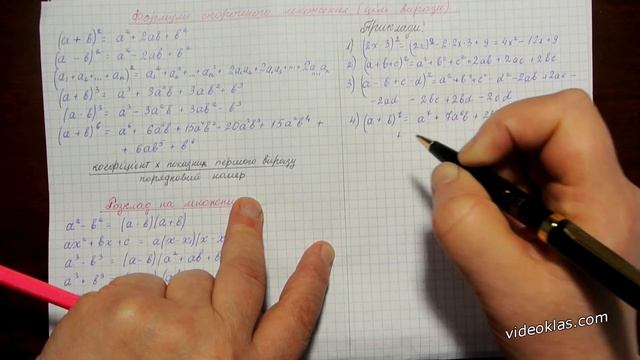 Формули скороченого множення (цілі вирази)
(a + b)² = a² + 2ab + b²
(a - b)² = a² - 2ab + b²
(a₁ + a₂ + ... + aₙ)² = a₁² + a₂² + ... + aₙ² + 2a₁a₂ + 2a₁a₃ + ...
(a + b)³ = a³ + 3a²b + 3ab² + b³
(a - b)³ = a³ - 3a²b + 3ab² - b³
+ 6ab⁵ + b⁶
коефіцієнт x показник першого виразу
порядковий номер
Розклад на множники
a² - b² = (a - b)(a + b)
ax² + bx + c = a(x - x₁)(x - x
a³ - b³ = (a - b)(a² + ab + b
a³ + b³ =
Приклади:
1) (2x - 3)² = (2x)² - 2·2x·3 + 9 = 4x² - 12x + 9
2) (a + b + c)² = a² + b² + c² + 2ab + 2ac + 2bc
3) (a - b + c - d)² = a² + b² + c² - d² - 2ab + 2ac -
- 2ad - 2bc + 2bd - 2cd
4) (a + b)⁷ = a⁷ + 7a⁶b + 2
+
videoklas.com